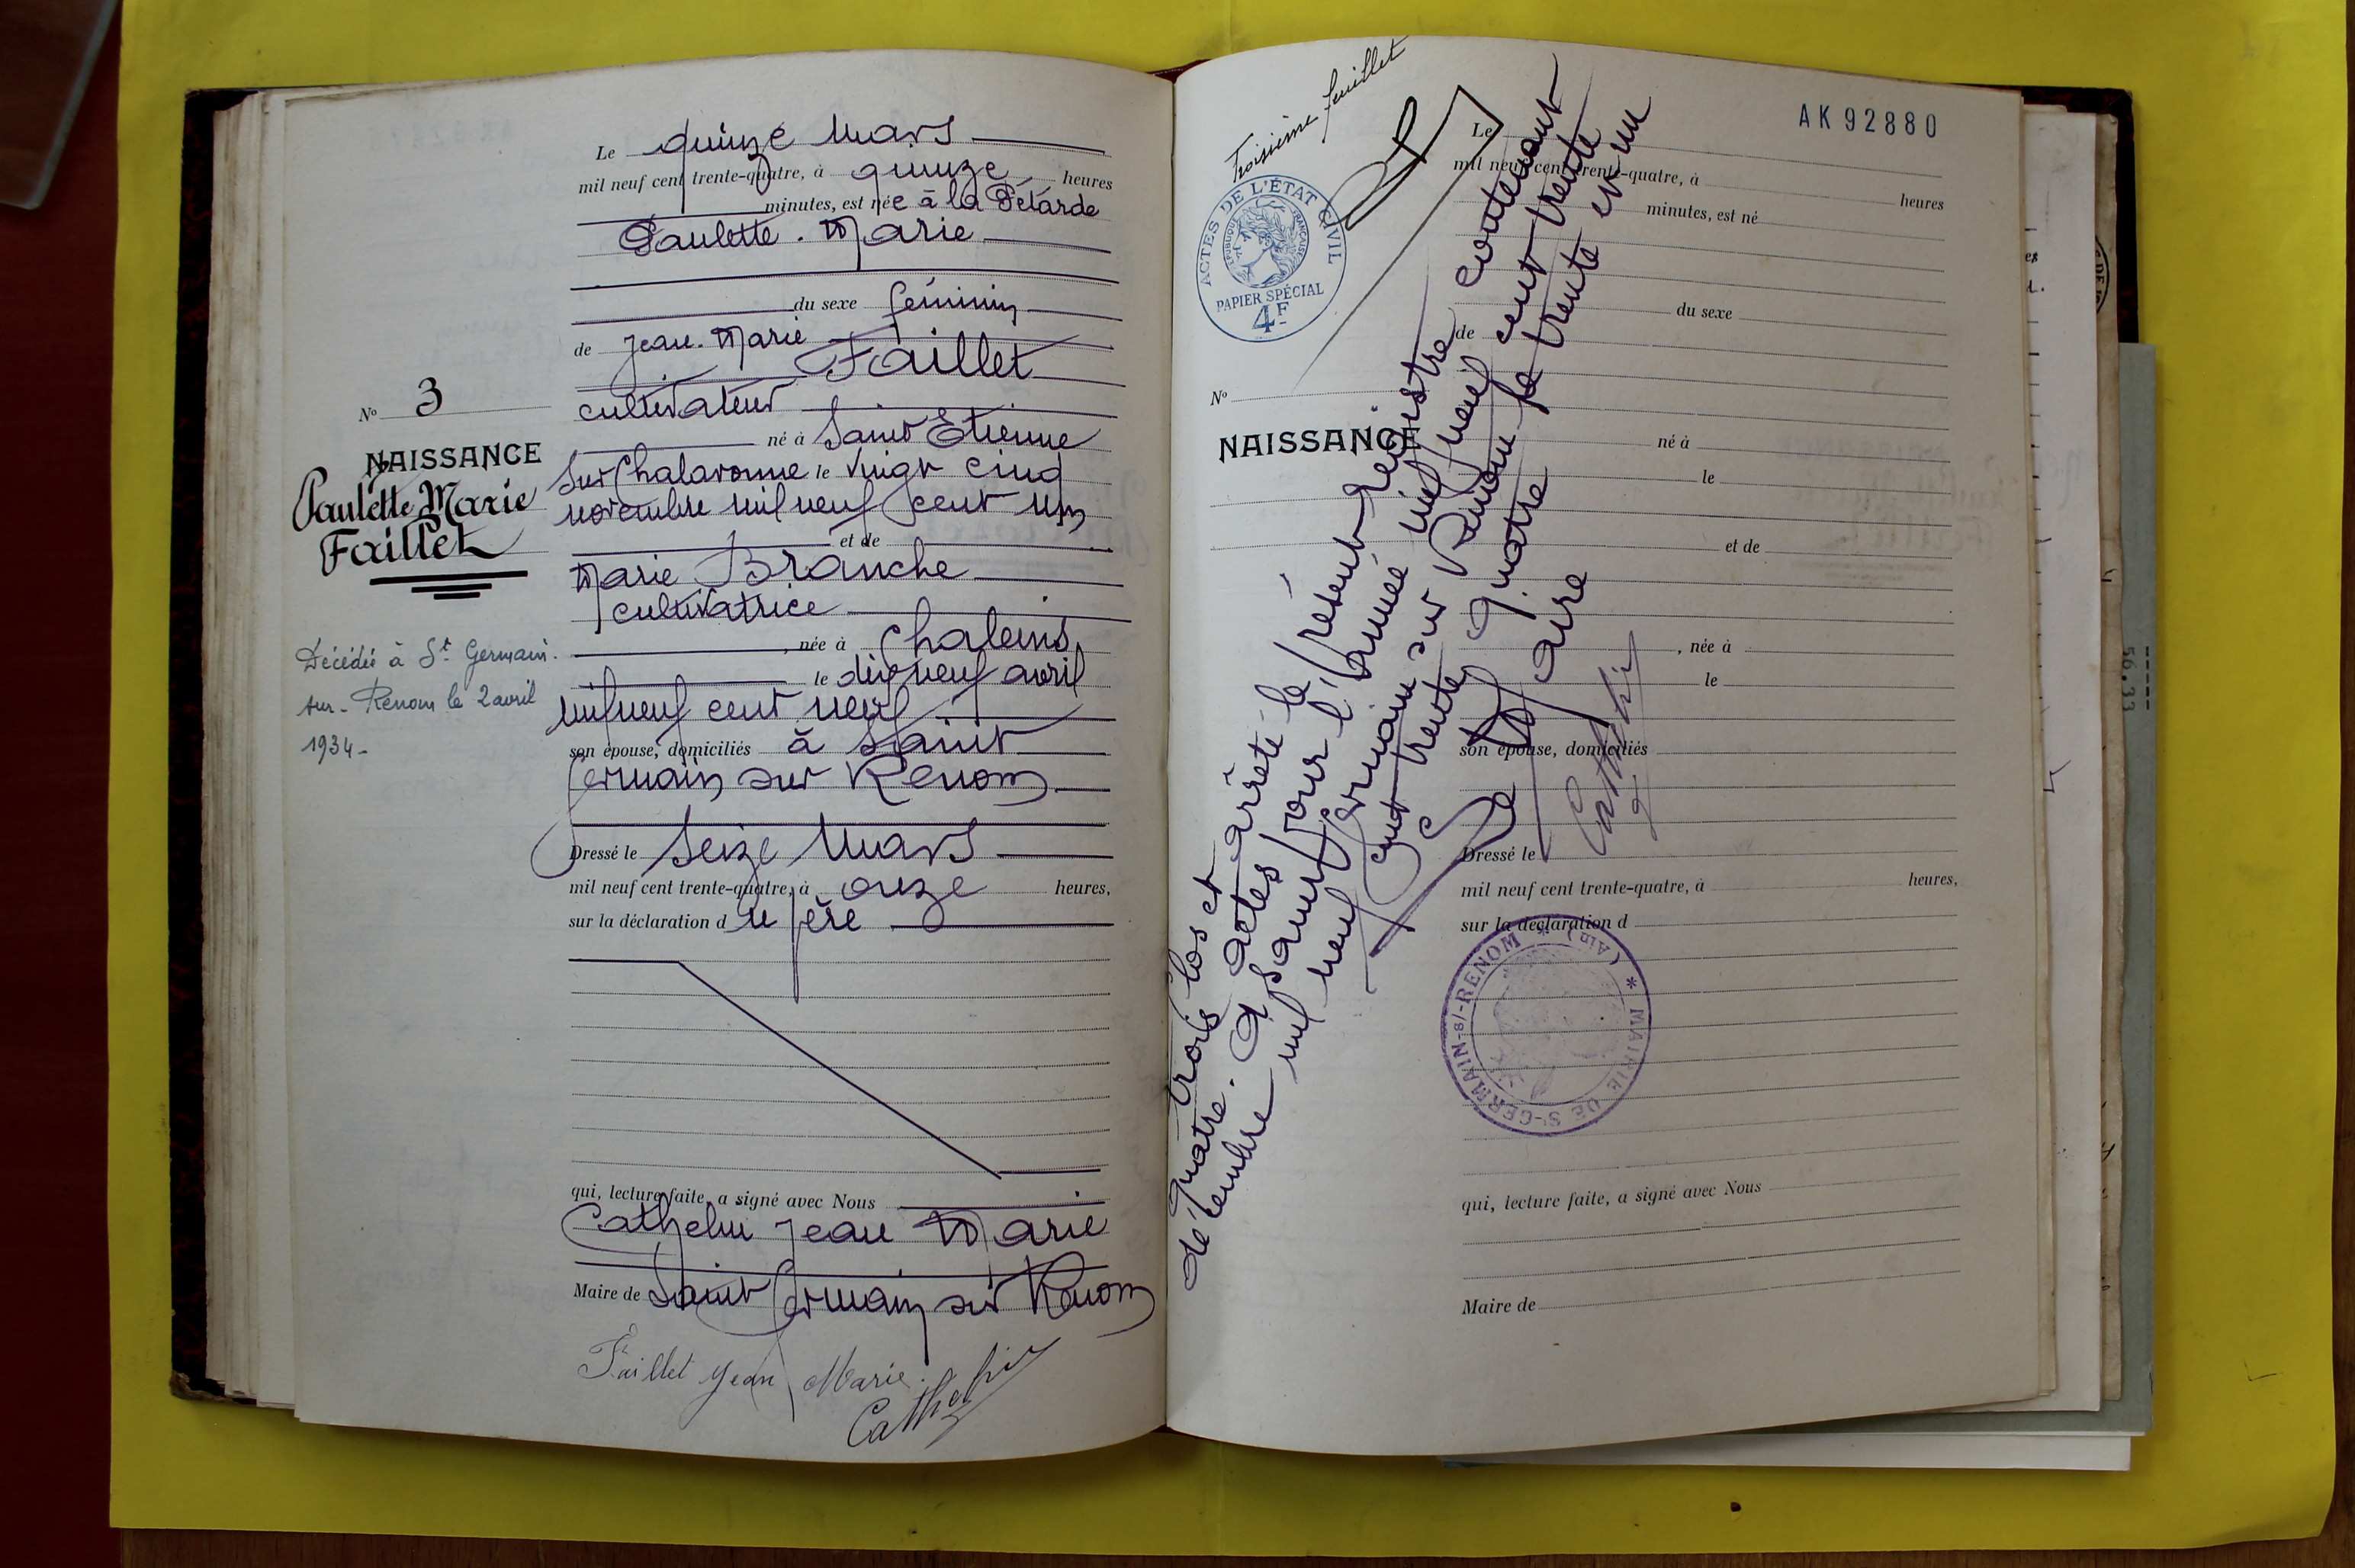 Le quinze Mars
mil neuf cent trente-quatre, à quinze heures
minutes, est née à la Pétarde
Paulette. Marie
du sexe féminin
de Jean-Marie
Faillet
cultivateur
né à Saint Etienne
sur Chalaronne le vingt cinq
novembre mil neuf cent un
et de
Marie Branche
cultivatrice
, née à Chaleins
le dix neuf avril
mil neuf cent neuf
son épouse, domiciliés à Saint
Germain sur Renom
Dressé le seize Mars
mil neuf cent trente-quatre, à onze heures,
sur la déclaration du père
qui, lecture faite, a signé avec Nous
Cathelin Jean Marie
Maire de Saint Germain sur Renom
Faillet Jean Marie.
Cathelin
No 3
NAISSANCE
Paulette Marie
Faillet
Décédée à St Germain-
sur-Renom le 2 avril
1934-
Troisième feuillet
ACTES DE L'ÉTAT CIVIL
RÉPUBLIQUE FRANÇAISE
PAPIER SPÉCIAL
4F
AK 92880
Le
mil neuf cent trente-quatre, à
heures
minutes, est né
du sexe
de
No
NAISSANCE
né à
le
et de
, née à
le
son épouse, domiciliés
Dressé le
mil neuf cent trente-quatre, à
heures,
sur la déclaration d
qui, lecture faite, a signé avec Nous
Maire de
Clos et arrêté le présent registre contenant
trois actes pour l'année mil neuf cent trente
quatre. A Saint Germain sur Renom le trente et un
décembre mil neuf cent trente quatre
Le Maire
Cathelin
MAIRIE DE St-GERMAIN-s/-RENOM * (Ain) *